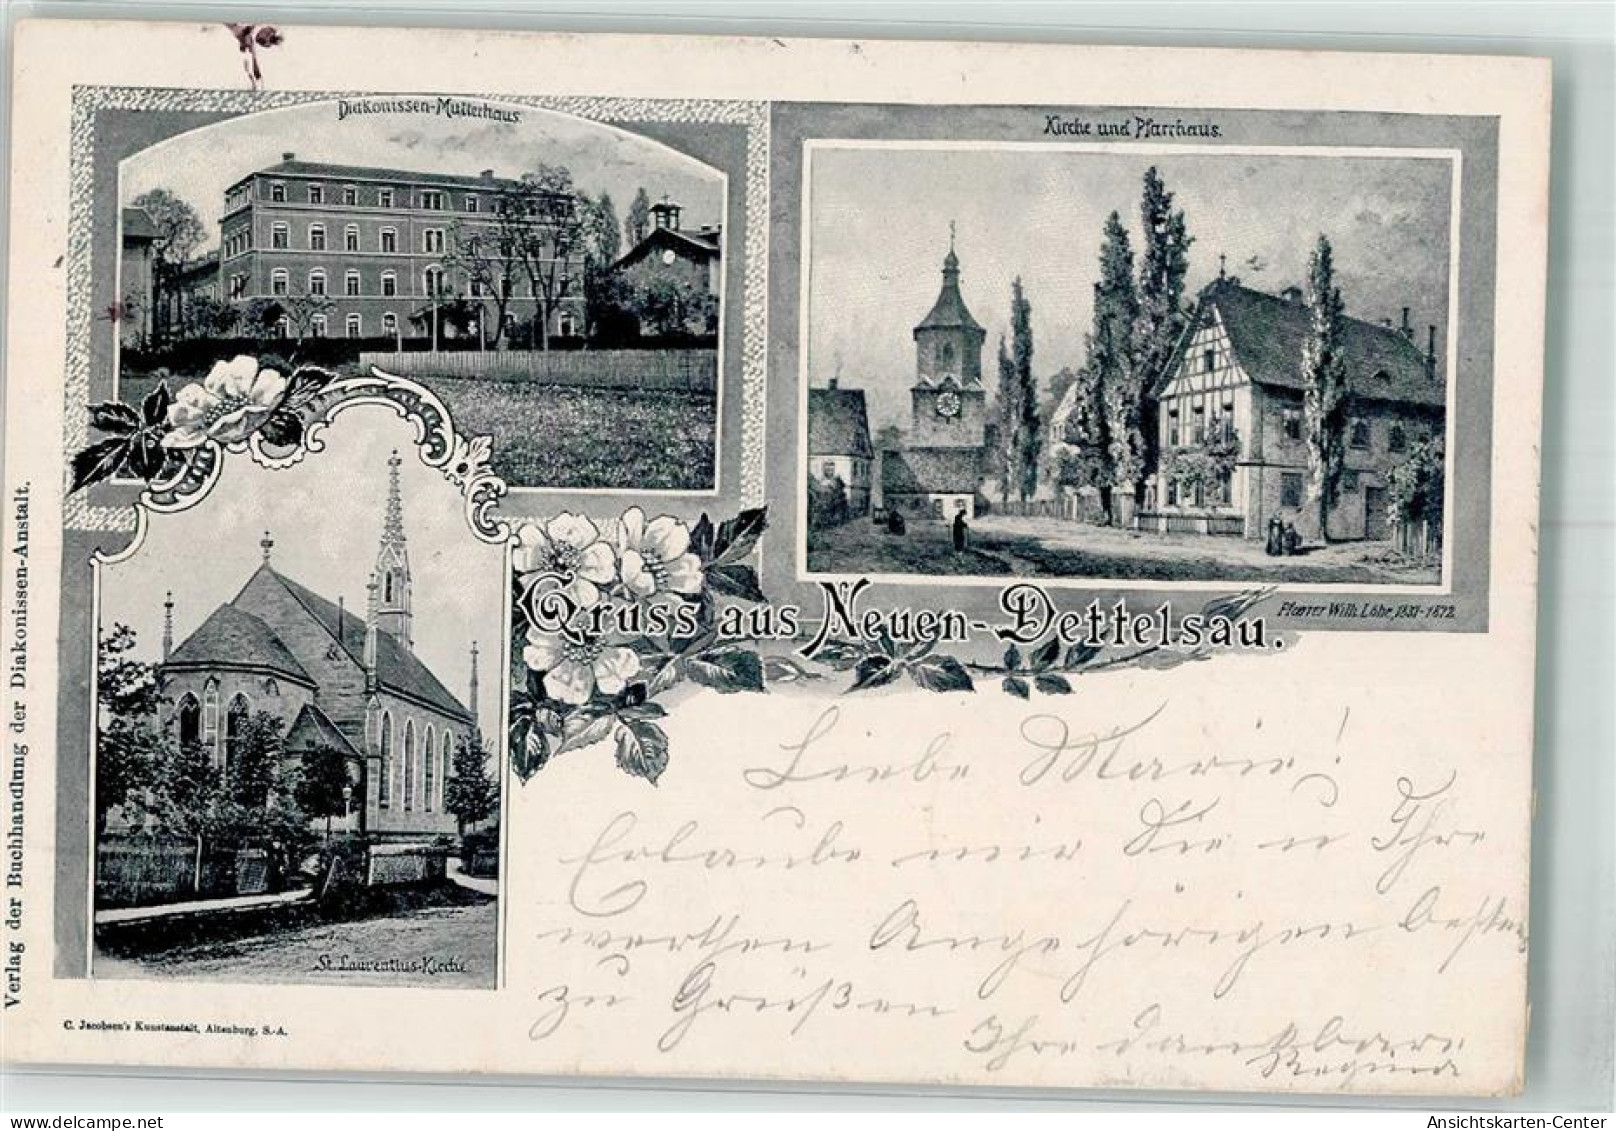 Diakonissen-Mutterhaus.
Kirche und Pfarrhaus.
Pfarrer Wilh. Löhe, 1837-1872.
Gruss aus Neuen-Dettelsau.
St. Laurentius-Kirche
Verlag der Buchhandlung der Diakonissen-Anstalt.
C. Jacobsen's Kunstanstalt, Altenburg, S.-A.
Liebe Marie!
Erlaube mir Sie u Ihre
werthen Angehörigen bestens
zu Grüßen
Ihre dankbare
Regina
Ansichtskarten-Center